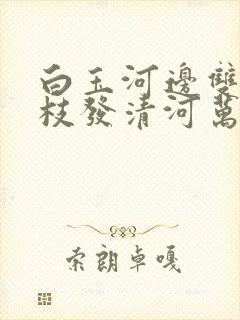 白玉河邊雙
枝發清河萬
索朗卓嘎